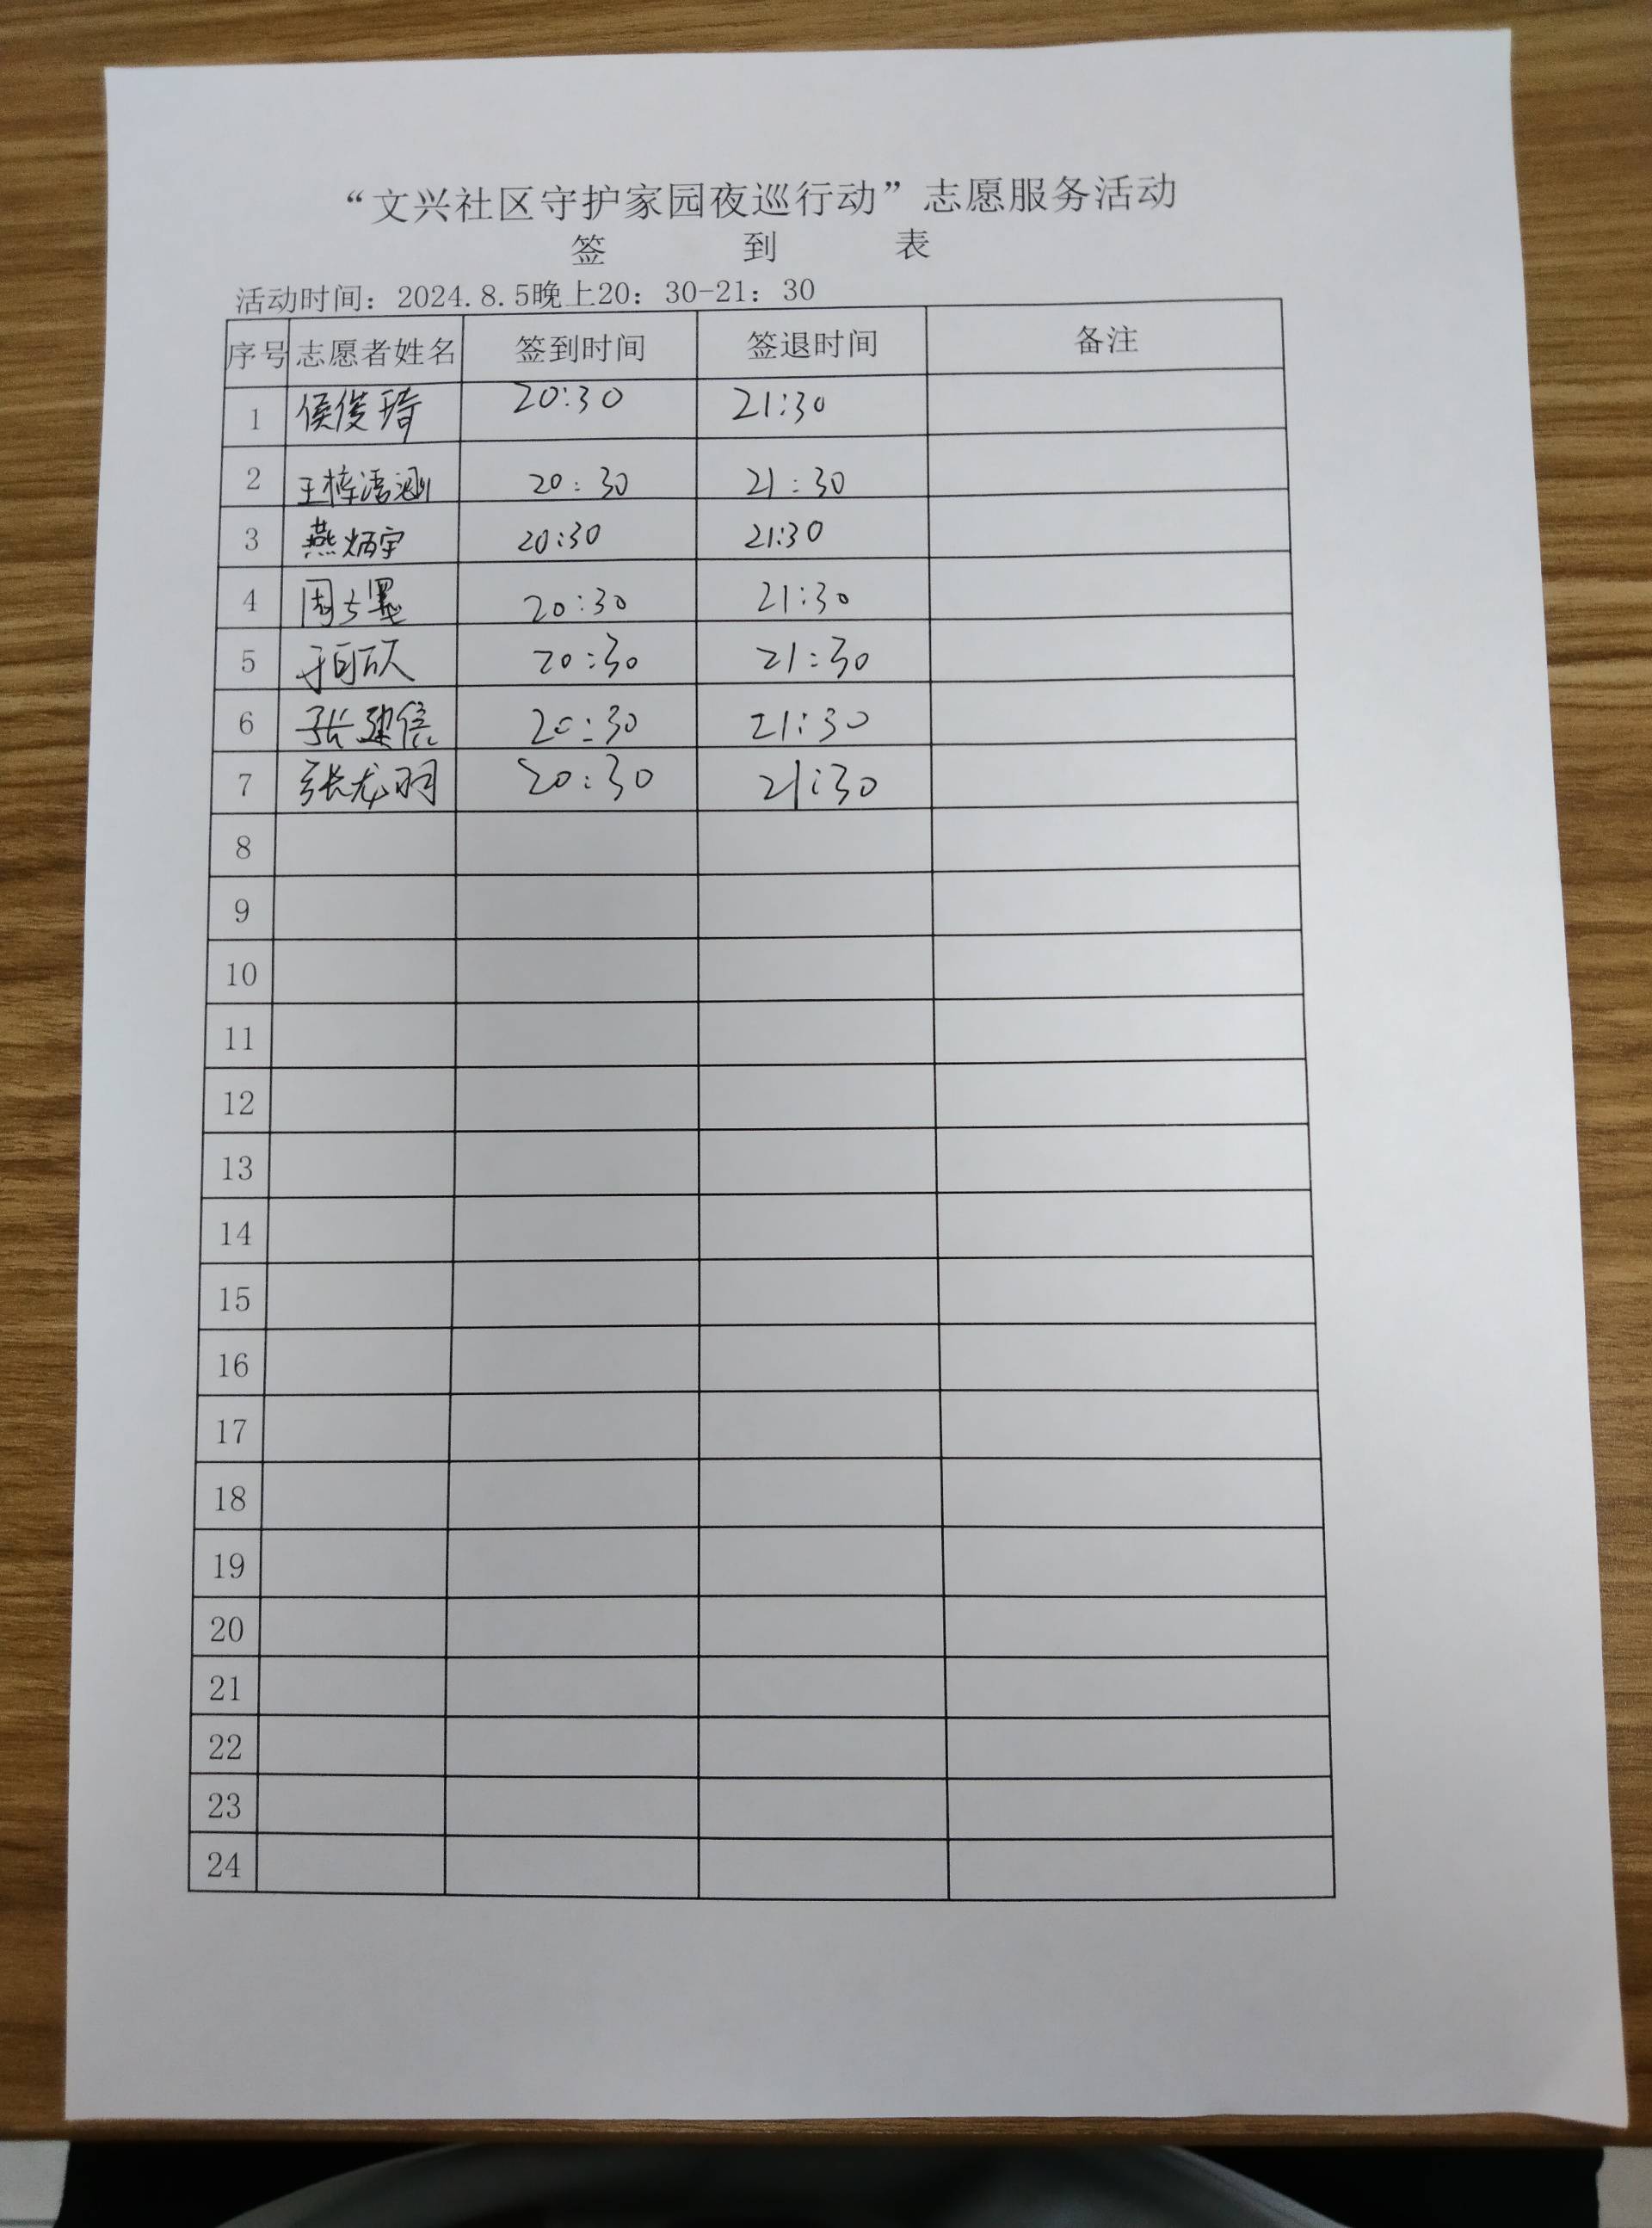 “文兴社区守护家园夜巡行动”志愿服务活动
签 到 表
活动时间：2024.8.5晚上20：30-21：30
序号 志愿者姓名 签到时间 签退时间 备注
1 侯俊琦 20:30 21:30
2 王梓清涵 20:30 21:30
3 燕炳宇 20:30 21:30
4 周士墨 20:30 21:30
5 于百硕 20:30 21:30
6 张建信 20:30 21:30
7 张龙羽 20:30 21:30
8
9
10
11
12
13
14
15
16
17
18
19
20
21
22
23
24